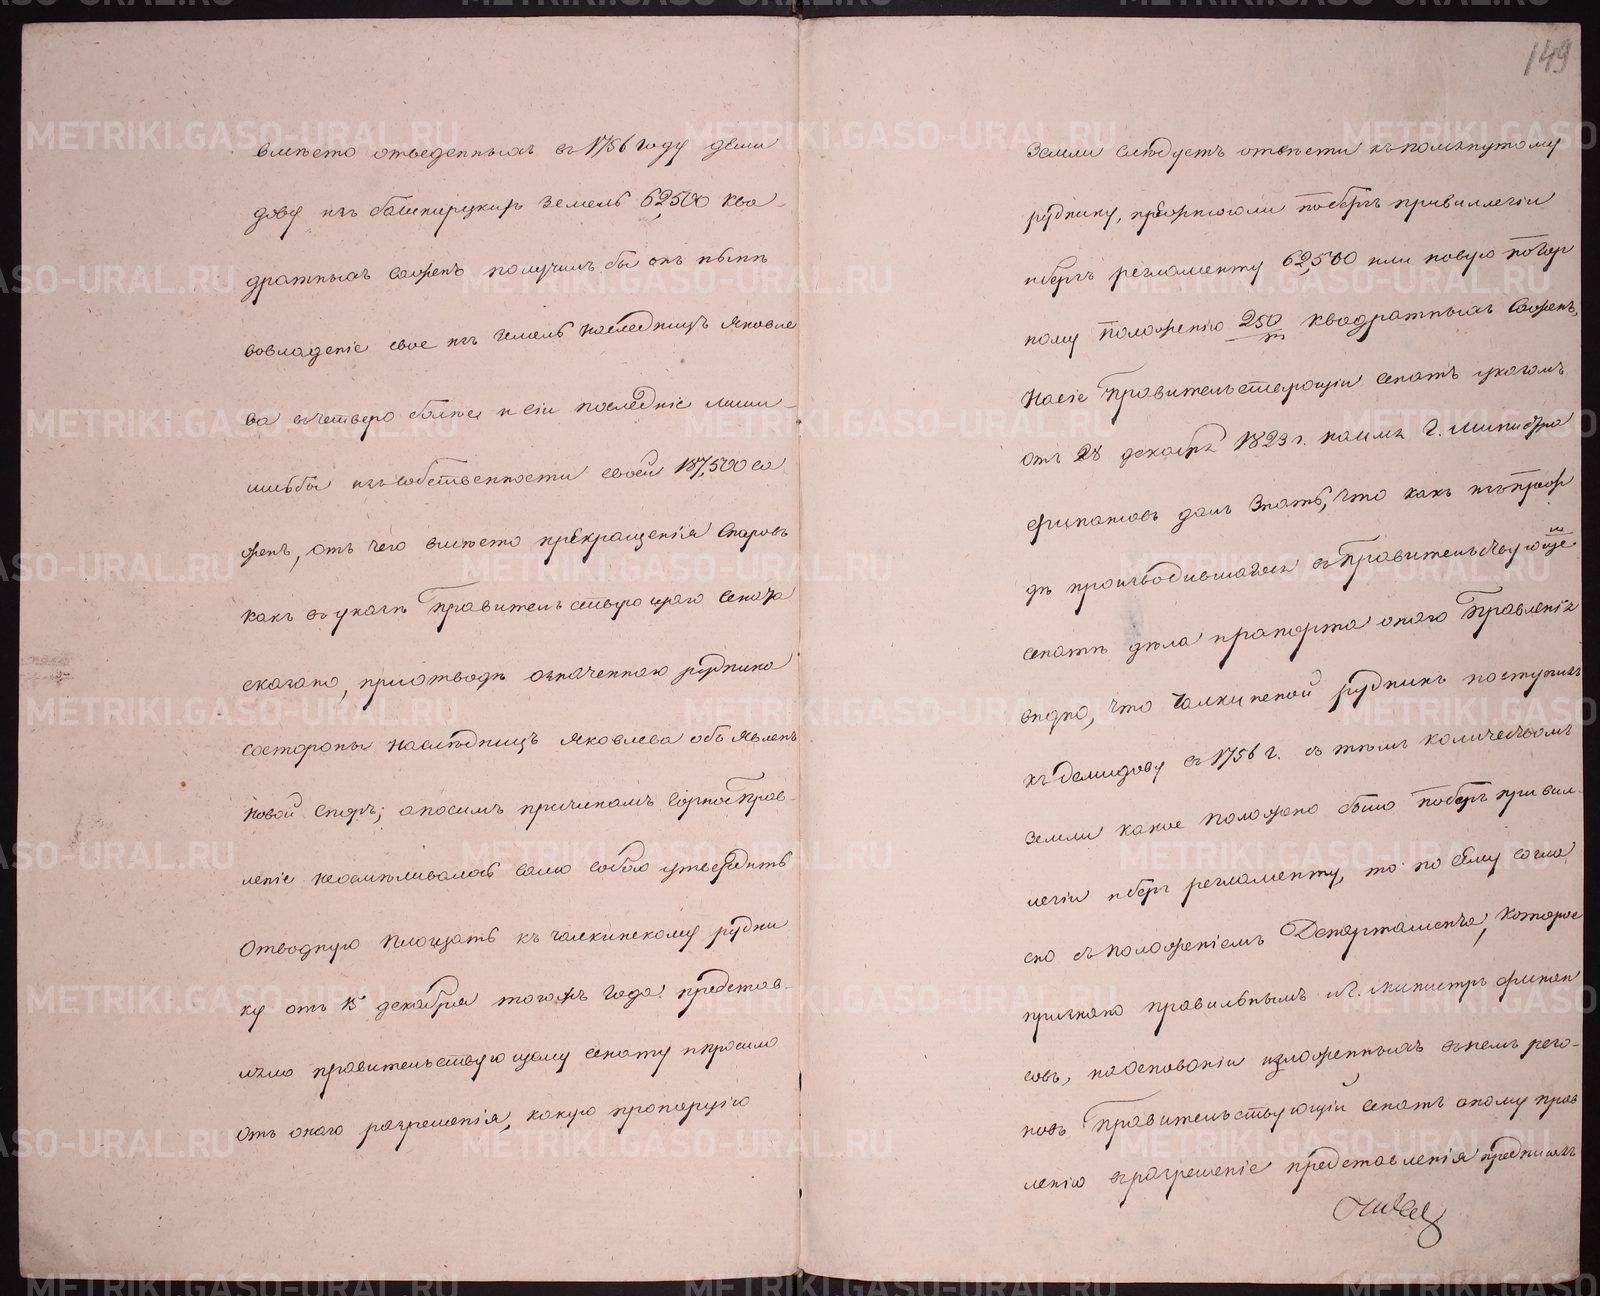 149
вместо отведенныхъ въ 1756 году деми
дову изъ башкирскихъ земель 62,500 ква-
дратныхъ сажень получилъ бы онъ нынѣ
вовладеніе свое изъ земель наследницъ Яковле
ва вчетверо болѣе и сіи последніе лиши-
лисьбы изъ собственности своей 187,500 са
жень, отъ чего вместо прекращенія Споровъ
какъ въ указѣ Правительствующаго Сената
сказано, приотводѣ означеннаго рудника
состороны наследницъ Яковлева объявленъ
новой Споръ; апосимъ причинамъ Горное Прав-
леніе неосмѣливалось само собою утвердить
Отводную площадь къ галкинскому рудни
ку отъ 15 декабря тогожъ Года представ-
ляло правительствующему Сенату ипросило
отъ онаго разрешенія, какую пропорцію
Земли следуетъ отвѣсти къ помянутому
руднику, прежнюю ли побергъ привиллегіи
ибергъ регламенту 62,500 или новую погор
ному положенію 250/т квадратныхъ Сажень,
На сіе Правительствующіи Сенатъ указомъ
отъ 28 декабря 1823 г. на имя Г. Министра
финансовъ далъ Знать, что какъ изъ преж
де производившагося въ Правительствующе
мъ
Сенатѣ дѣла ирапорта онаго Правленія
видно, что Галкинской рудникъ поступилъ
къ Демидову въ 1756 г. съ тѣмъ количествомъ
Земли какое положено было побергъ привил-
легіи ибергъ регламенту, то по сему соглa
сно съ положеніемъ Департамента, которое
признано правильнымъ и Г. Министръ финан
совъ, наоснованіи изложенныхъ внемъ резо-
новъ Правительствующіи Сенатъ оному прав
ленію въразрешеніе представленія предписалъ